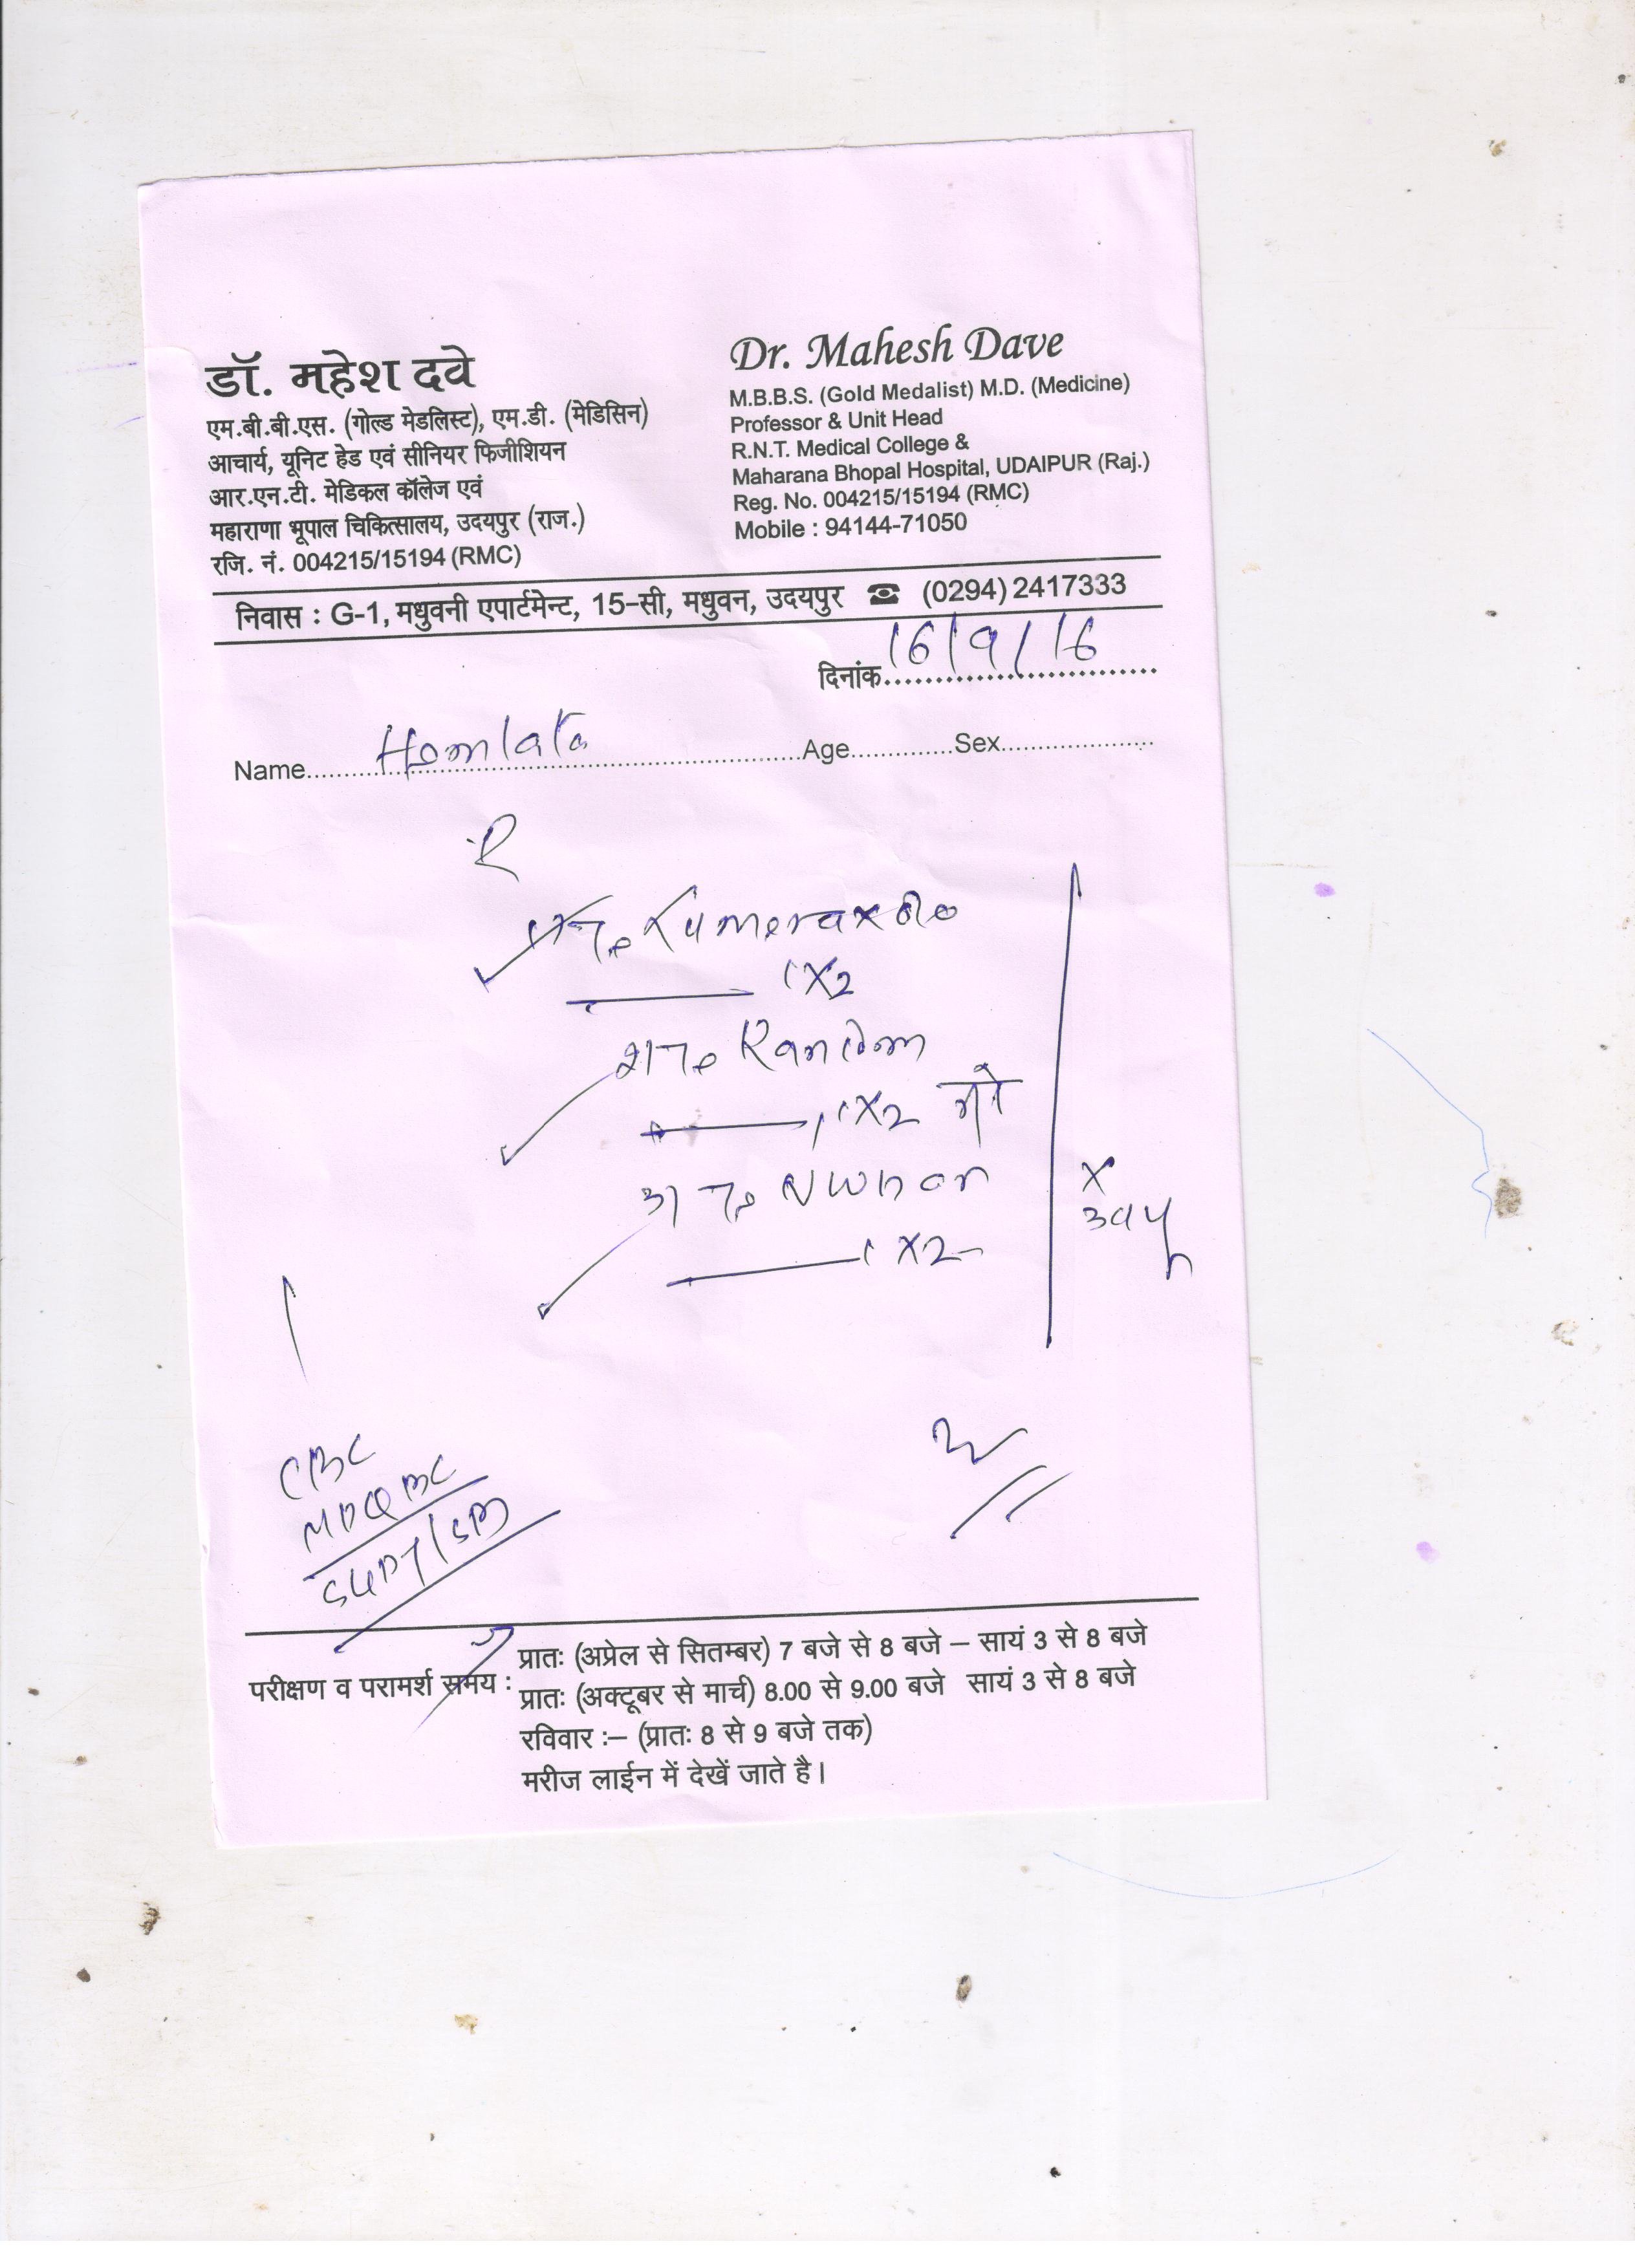 डॉ. महेश दवे
एम.बी.बी.एस. (गोल्ड मेडलिस्ट), एम.डी. (मेडिसिन)
आचार्य, यूनिट हेड एवं सीनियर फिजीशियन
आर.एन.टी. मेडिकल कॉलेज एवं
महाराणा भूपाल चिकित्सालय, उदयपुर (राज.)
रजि. नं. 004215/15194 (RMC)
Dr. Mahesh Dave
M.B.B.S. (Gold Medalist) M.D. (Medicine)
Professor & Unit Head
R.N.T. Medical College &
Maharana Bhopal Hospital, UDAIPUR (Raj.)
Reg. No. 004215/15194 (RMC)
Mobile : 94144-71050
निवास : G-1, मधुवनी एपार्टमेन्ट, 15-सी, मधुवन, उदयपुर ☎ (0294) 2417333
दिनांक 16/9/16
Name Hemlata Age Sex
1x2
1x2 गो
1x2
x
CBC
परीक्षण व परामर्श समय : प्रातः (अप्रेल से सितम्बर) 7 बजे से 8 बजे – सायं 3 से 8 बजे
प्रातः (अक्टूबर से मार्च) 8.00 से 9.00 बजे सायं 3 से 8 बजे
रविवार :– (प्रातः 8 से 9 बजे तक)
मरीज लाईन में देखें जाते है।